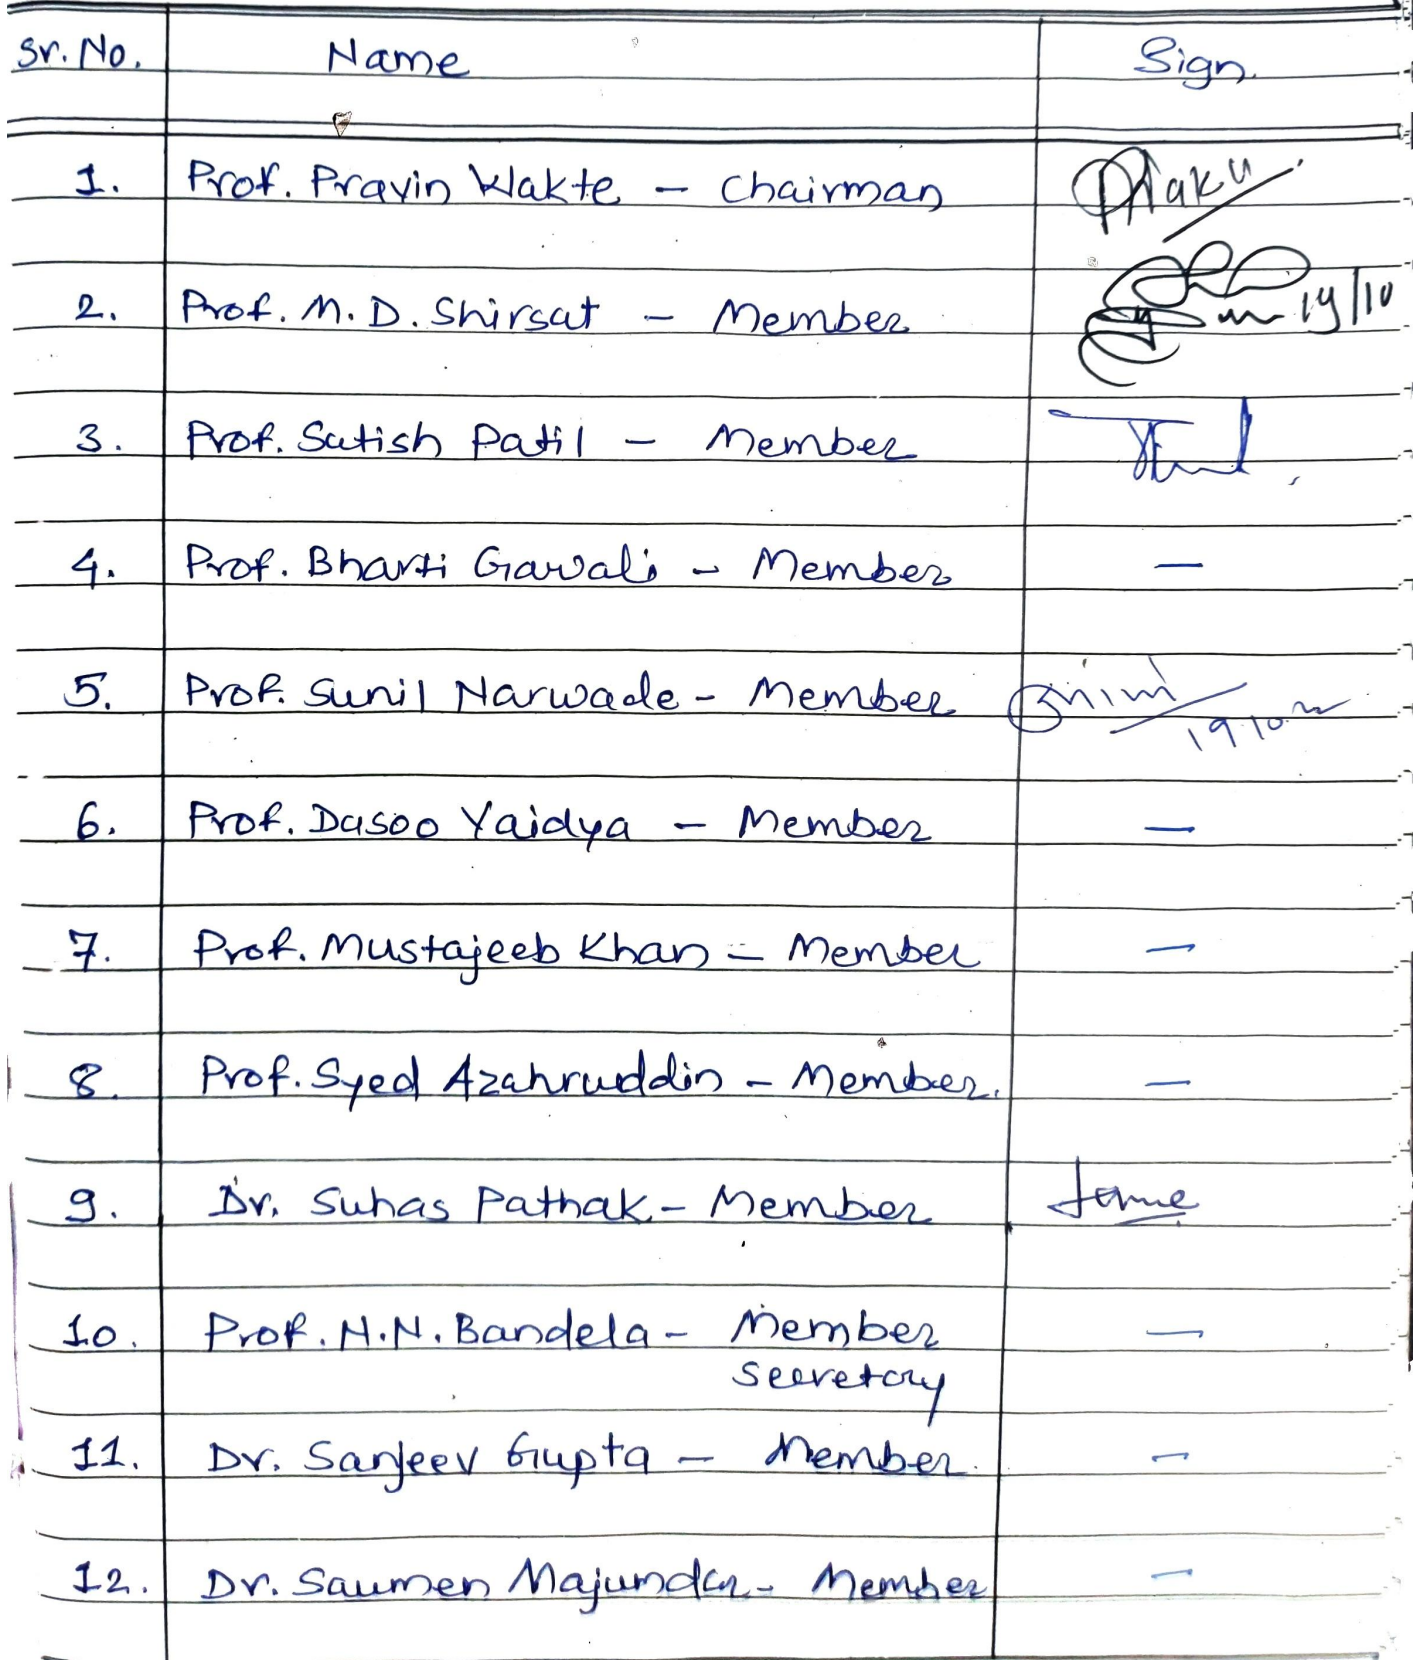 Sr. No. Name Sign.
1. Prof. Pravin Wakte - Chairman
2. Prof. M. D. Shirsat - Member 19/10
3. Prof. Satish Patil - Member
4. Prof. Bharti Gawali - Member -
5. Prof. Sunil Narwade - Member
6. Prof. Dasoo Vaidya - Member -
7. Prof. Mustajeeb Khan - Member -
8. Prof. Syed Azahruddin - Member. -
9. Dr. Suhas Pathak - Member
10. Prof. N.N. Bandela - Member -
Secretary
11. Dr. Sanjeev Gupta - Member. -
12. Dr. Saumen Majumdar - Member -